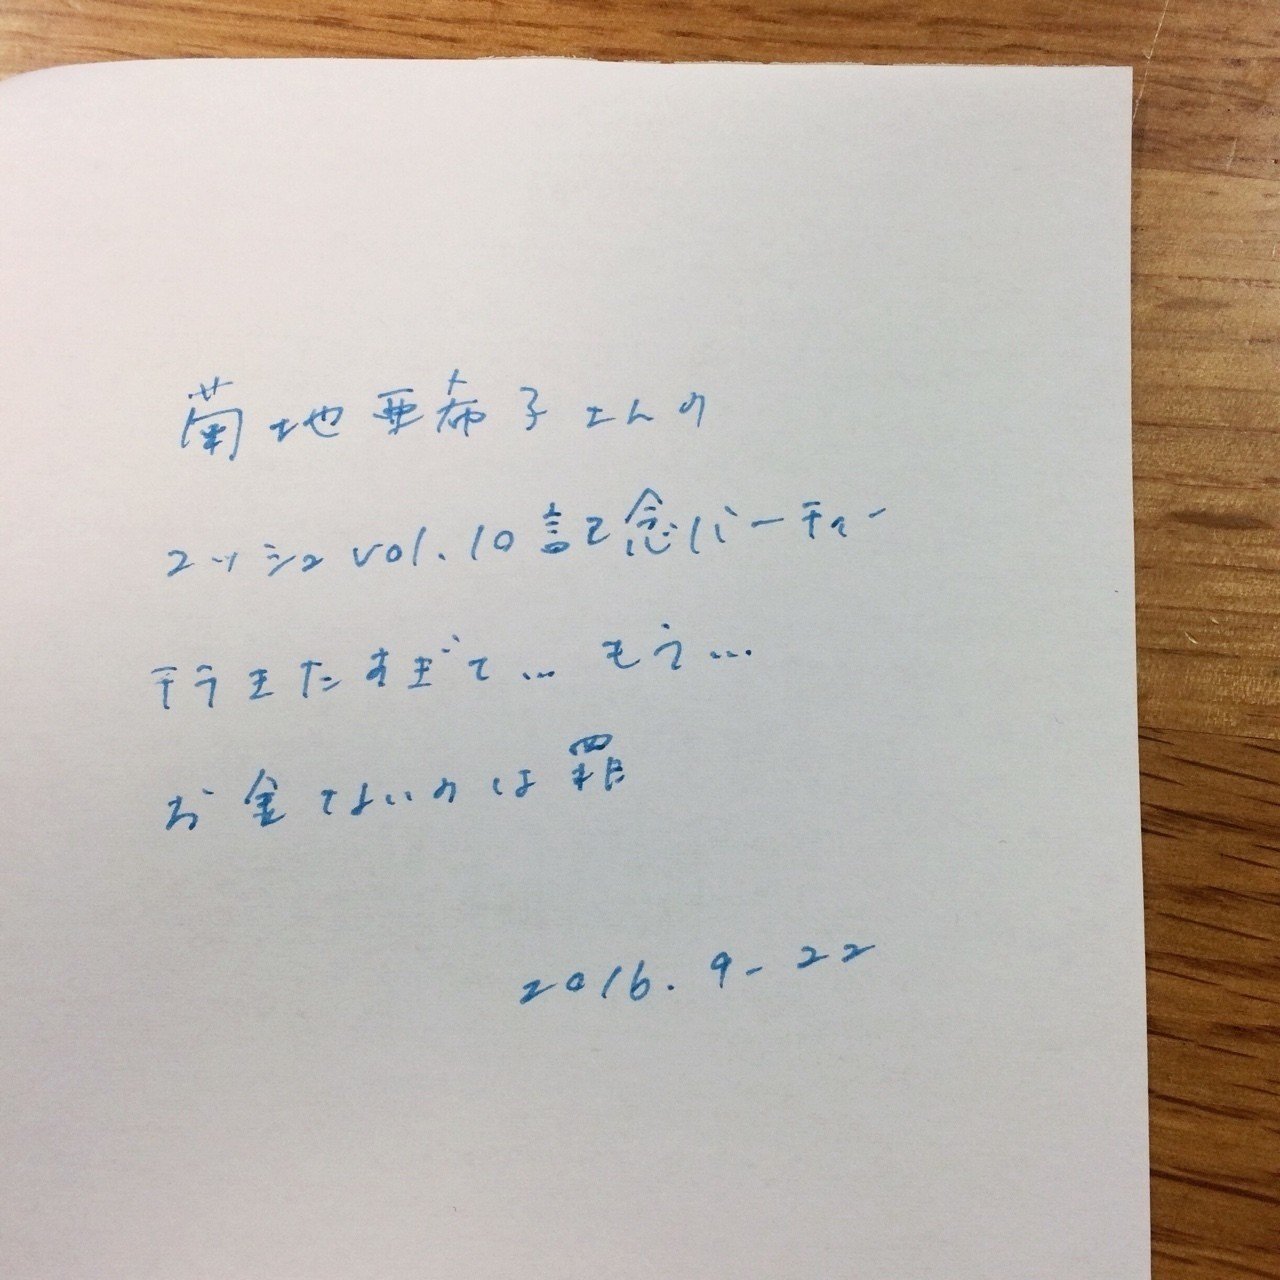 菊地亜希子さんの
マッシュvol.10記念パーティー
行きたすぎて... もう...
お金ないのは罪
2016.9.22